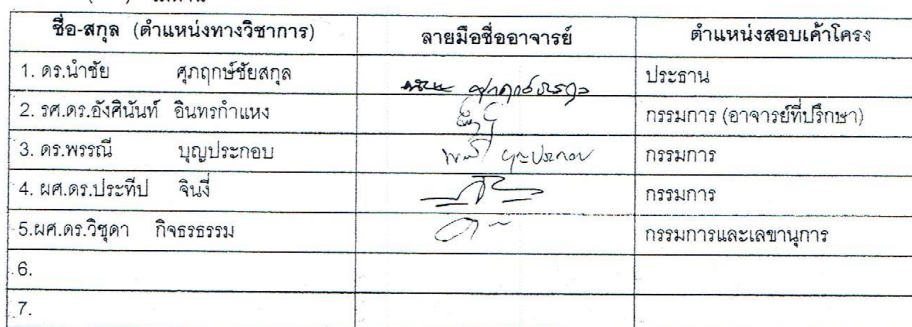 ชื่อ-สกุล (ตำแหน่งทางวิชาการ) ลายมือชื่ออาจารย์ ตำแหน่งสอบเค้าโครง
1. ดร.นำชัย ศุภฤกษ์ชัยสกุล ประธาน
2. รศ.ดร.อังศินันท์ อินทรกำแหง กรรมการ (อาจารย์ที่ปรึกษา)
3. ดร.พรรณี บุญประกอบ พรรณี บุญประกอบ กรรมการ
4. ผศ.ดร.ประทีป จินงี่ กรรมการ
5.ผศ.ดร.วิชุดา กิจธรธรรม กรรมการและเลขานุการ
6.
7.